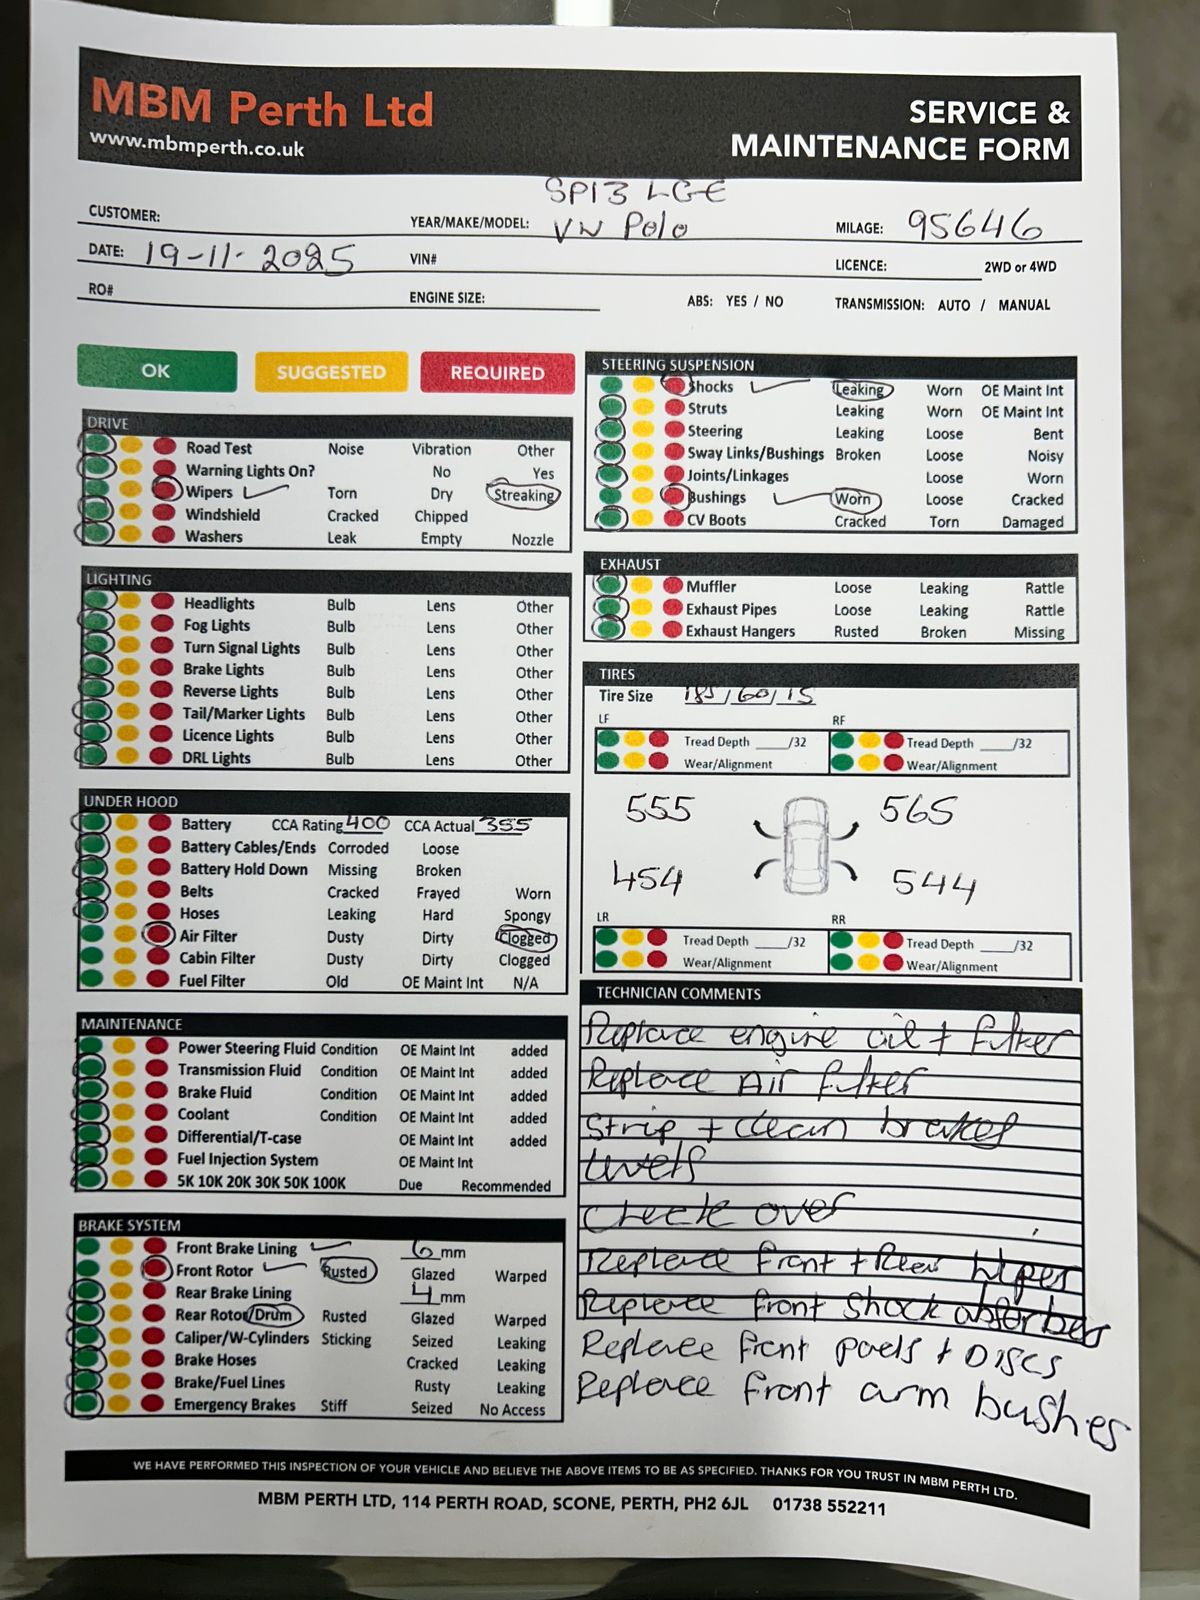 MBM Perth Ltd
www.mbmperth.co.uk
SERVICE &
MAINTENANCE FORM
SP13 LGE
CUSTOMER:
YEAR/MAKE/MODEL: VW Polo
MILAGE: 95646
DATE: 19-11-2025
VIN#
LICENCE: 2WD or 4WD
RO#
ENGINE SIZE:
ABS: YES / NO
TRANSMISSION: AUTO / MANUAL
OK SUGGESTED REQUIRED
DRIVE
Road Test Noise Vibration Other
Warning Lights On? No Yes
Wipers Torn Dry Streaking
Windshield Cracked Chipped
Washers Leak Empty Nozzle
LIGHTING
Headlights Bulb Lens Other
Fog Lights Bulb Lens Other
Turn Signal Lights Bulb Lens Other
Brake Lights Bulb Lens Other
Reverse Lights Bulb Lens Other
Tail/Marker Lights Bulb Lens Other
Licence Lights Bulb Lens Other
DRL Lights Bulb Lens Other
UNDER HOOD
Battery CCA Rating 400 CCA Actual 355
Battery Cables/Ends Corroded Loose
Battery Hold Down Missing Broken
Belts Cracked Frayed Worn
Hoses Leaking Hard Spongy
Air Filter Dusty Dirty Clogged
Cabin Filter Dusty Dirty Clogged
Fuel Filter Old OE Maint Int N/A
MAINTENANCE
Power Steering Fluid Condition OE Maint Int added
Transmission Fluid Condition OE Maint Int added
Brake Fluid Condition OE Maint Int added
Coolant Condition OE Maint Int added
Differential/T-case OE Maint Int added
Fuel Injection System OE Maint Int
5K 10K 20K 30K 50K 100K Due Recommended
BRAKE SYSTEM
Front Brake Lining 6 mm
Front Rotor Rusted Glazed Warped
Rear Brake Lining 4 mm
Rear Rotor/Drum Rusted Glazed Warped
Caliper/W-Cylinders Sticking Seized Leaking
Brake Hoses Cracked Leaking
Brake/Fuel Lines Rusty Leaking
Emergency Brakes Stiff Seized No Access
STEERING SUSPENSION
Shocks Leaking Worn OE Maint Int
Struts Leaking Worn OE Maint Int
Steering Leaking Loose Bent
Sway Links/Bushings Broken Loose Noisy
Joints/Linkages Loose Worn
Bushings Worn Loose Cracked
CV Boots Cracked Torn Damaged
EXHAUST
Muffler Loose Leaking Rattle
Exhaust Pipes Loose Leaking Rattle
Exhaust Hangers Rusted Broken Missing
TIRES
Tire Size 185/60/15
LF RF
Tread Depth ____/32 Tread Depth ____/32
Wear/Alignment Wear/Alignment
555 565
454 544
LR RR
Tread Depth ____/32 Tread Depth ____/32
Wear/Alignment Wear/Alignment
TECHNICIAN COMMENTS
Replace engine oil + filter
Replace Air filter
Strip + clean brakes
levels
check over
Replace front + Rear wiper
Replace front shock absorber
Replace front pads + Discs
Replace front arm bushes
WE HAVE PERFORMED THIS INSPECTION OF YOUR VEHICLE AND BELIEVE THE ABOVE ITEMS TO BE AS SPECIFIED. THANKS FOR YOU TRUST IN MBM PERTH LTD.
MBM PERTH LTD, 114 PERTH ROAD, SCONE, PERTH, PH2 6JL 01738 552211